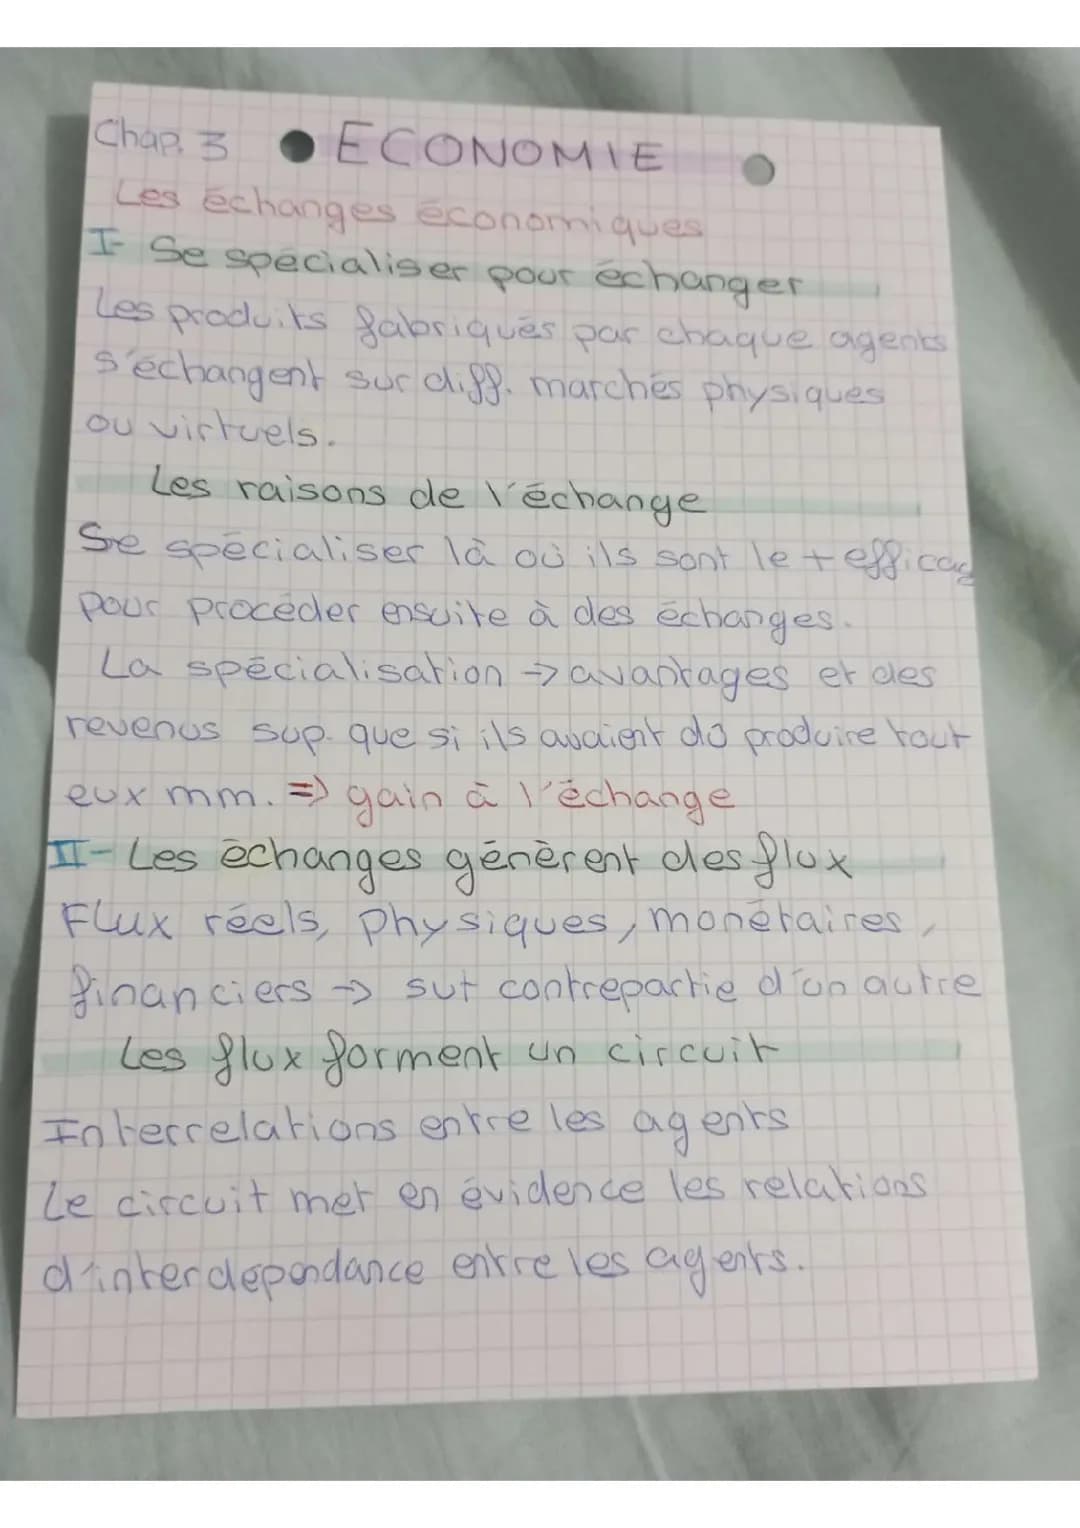 Chap. 3 ECONOMIE
Les échanges économiques
I- Se spécialiser pour échanger
Les produits fabriqués par chaque agents
s'échangent sur diff. marchés physiques
ou virtuels.
Les raisons de l'échange
Se spécialiser là où ils sont le + efficace
pour procéder ensuite à des échanges.
La spécialisation → avantages et des
revenus sup. que si ils avaient dû produire tout
eux mm. => gain à l'échange
II- Les échanges génèrent des flux
Flux réels, physiques, monétaires,
financiers → sut contrepartie d'un autre
Les flux forment un circuit
Interrelations entre les agents
Le circuit met en évidence les relations
d'interdépendance entre les agents.